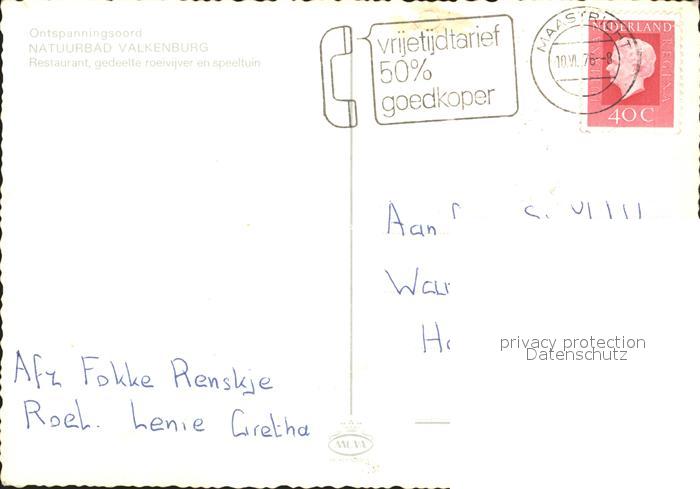 Ontspanningsoord
NATUURBAD VALKENBURG
Restaurant, gedeelte roeivijver en speeltuin
vrijetijdtarief
50%
goedkoper
MAASTRICHT
10.VI.76-8
NEDERLAND
JULIANA REGINA
40 C
Aan
privacy protection
Datenschutz
Afz Fokke Renskje
Roel. Lenie Gretha